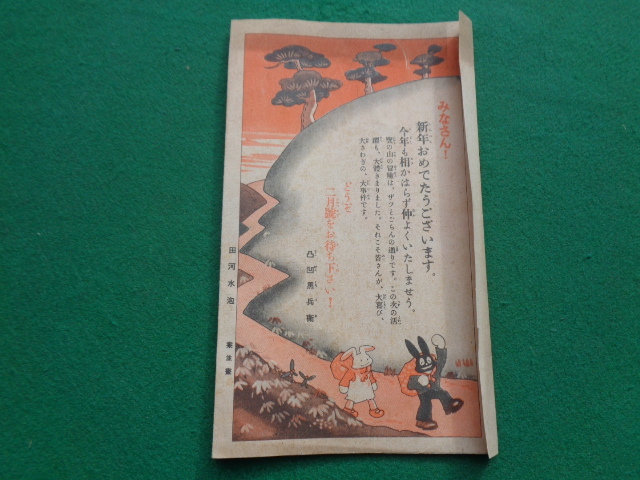 みなさん!
新年おめでたうございます。
今年も相かはらず仲よくいたしませう。
山の冒險は、ザツとごらんの通りです。この次の活
躍も、大體きまりました。それこそ皆さんが、大喜び、
大さわぎの、大事件です。
どうぞ
二月號をお待ち下さい!
凸凹黒兵衞
田河水泡